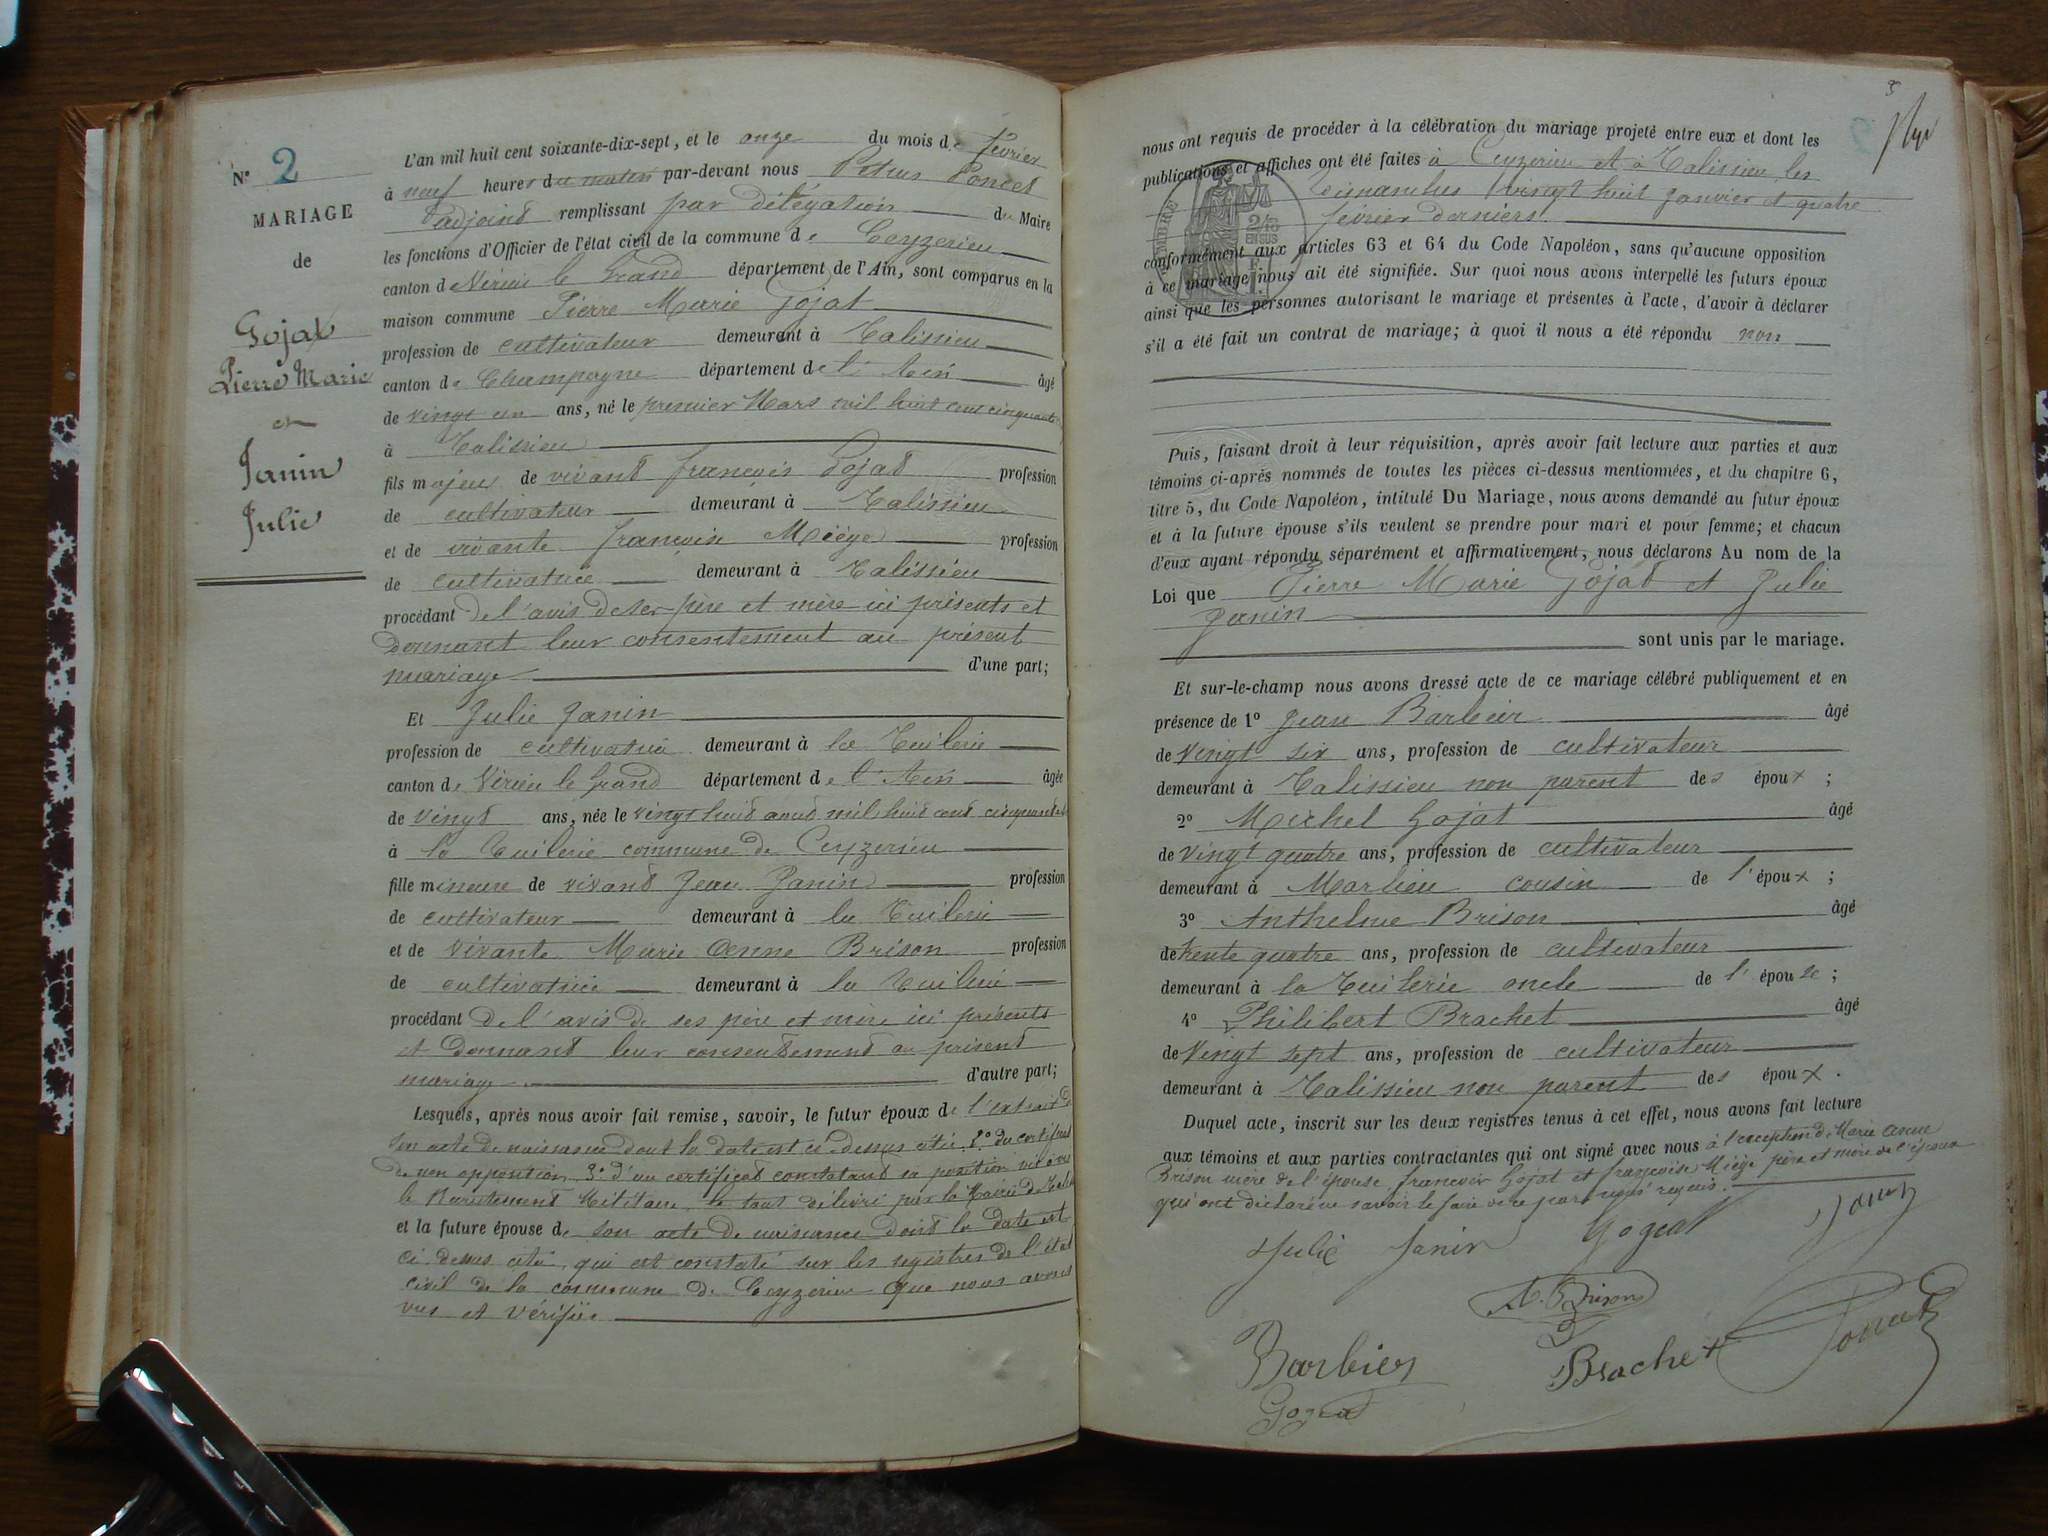 Nº 2
MARIAGE
de
Gojat
Pierre Marie
et
Janin
Julie
L'an mil huit cent soixante-dix-sept, et le onze du mois de février
à neuf heures du matin par-devant nous Petrus Poncet
adjoint remplissant par délégation du Maire
les fonctions d'Officier de l'état civil de la commune de Ceyzerieu
canton de Virieu le Grand département de l'Ain, sont comparus en la
maison commune Pierre Marie Gojat
profession de cultivateur demeurant à Talissieu
canton de Champagne département de l'Ain âgé
de vingt un ans, né le premier Mars mil huit cent cinquante
à Talissieu
fils majeur de vivant françois Gojat profession
de cultivateur demeurant à Talissieu
et de vivante françoise Miège profession
de cultivatrice demeurant à Talissieu
procédant de l'avis de ses père et mère ici présents et
donnant leur consentement au présent
mariage d'une part;
Et Julie Janin
profession de cultivatrice demeurant à la Tuilerie
canton de Virieu le Grand département de l'Ain âgée
de vingt ans, née le vingt huit aout mil huit cent cinquante
à la Tuilerie commune de Ceyzerieu
fille mineure de vivant Jean Janin profession
de cultivateur demeurant à la Tuilerie
et de vivante Marie Anne Brison profession
de cultivatrice demeurant à la Tuilerie
procédant de l'avis de ses père et mère ici présents
et donnant leur consentement au présent
mariage d'autre part;
Lesquels, après nous avoir fait remise, savoir, le futur époux de l'extrait de
son acte de naissance dont la date est ci dessus citée. 2º du certificat
de non opposition 3º d'un certificat constatant sa position vis à vis
le Recrutement Militaire le tout délivré par la Mairie de
et la future épouse de son acte de naissance dont la date est
ci dessus citée, qui est constaté sur les registres de l'état
civil de la commune de Ceyzerieu que nous avons
vus et vérifiés
3
nous ont requis de procéder à la célébration du mariage projeté entre eux et dont les
publications et affiches ont été faites à Ceyzerieu et à Talissieu les
Dimanches vingt huit janvier et quatre
février derniers
conformément aux articles 63 et 64 du Code Napoléon, sans qu'aucune opposition
à ce mariage nous ait été signifiée. Sur quoi nous avons interpellé les futurs époux
ainsi que les personnes autorisant le mariage et présentes à l'acte, d'avoir à déclarer
s'il a été fait un contrat de mariage; à quoi il nous a été répondu non
TIMBRE
2/10
EN SUS
Puis, faisant droit à leur réquisition, après avoir fait lecture aux parties et aux
témoins ci-après nommés de toutes les pièces ci-dessus mentionnées, et du chapitre 6,
titre 5, du Code Napoléon, intitulé Du Mariage, nous avons demandé au futur époux
et à la future épouse s'ils veulent se prendre pour mari et pour femme; et chacun
d'eux ayant répondu séparément et affirmativement, nous déclarons Au nom de la
Loi que Pierre Marie Gojat et Julie
Janin
sont unis par le mariage.
Et sur-le-champ nous avons dressé acte de ce mariage célébré publiquement et en
présence de 1º Jean Barbier âgé
de vingt six ans, profession de cultivateur
demeurant à Talissieu non parent des époux ;
2º Michel Gojat âgé
de vingt quatre ans, profession de cultivateur
demeurant à Marlieu cousin de l'époux ;
3º Anthelme Brison âgé
de trente quatre ans, profession de cultivateur
demeurant à la Tuilerie oncle de l'épouse ;
4º Philibert Brachet âgé
de vingt sept ans, profession de cultivateur
demeurant à Talissieu non parent des époux .
Duquel acte, inscrit sur les deux registres tenus à cet effet, nous avons fait lecture
aux témoins et aux parties contractantes qui ont signé avec nous à l'exception de Marie Anne
Brison mère de l'épouse, françois Gojat et françoise Miège père et mère de l'époux
qui ont déclaré ne savoir le faire de ce par nous requis.
Julie Janin Gogeat Janin
A. Brison
Barbier Brachet Poncet
Gogeat